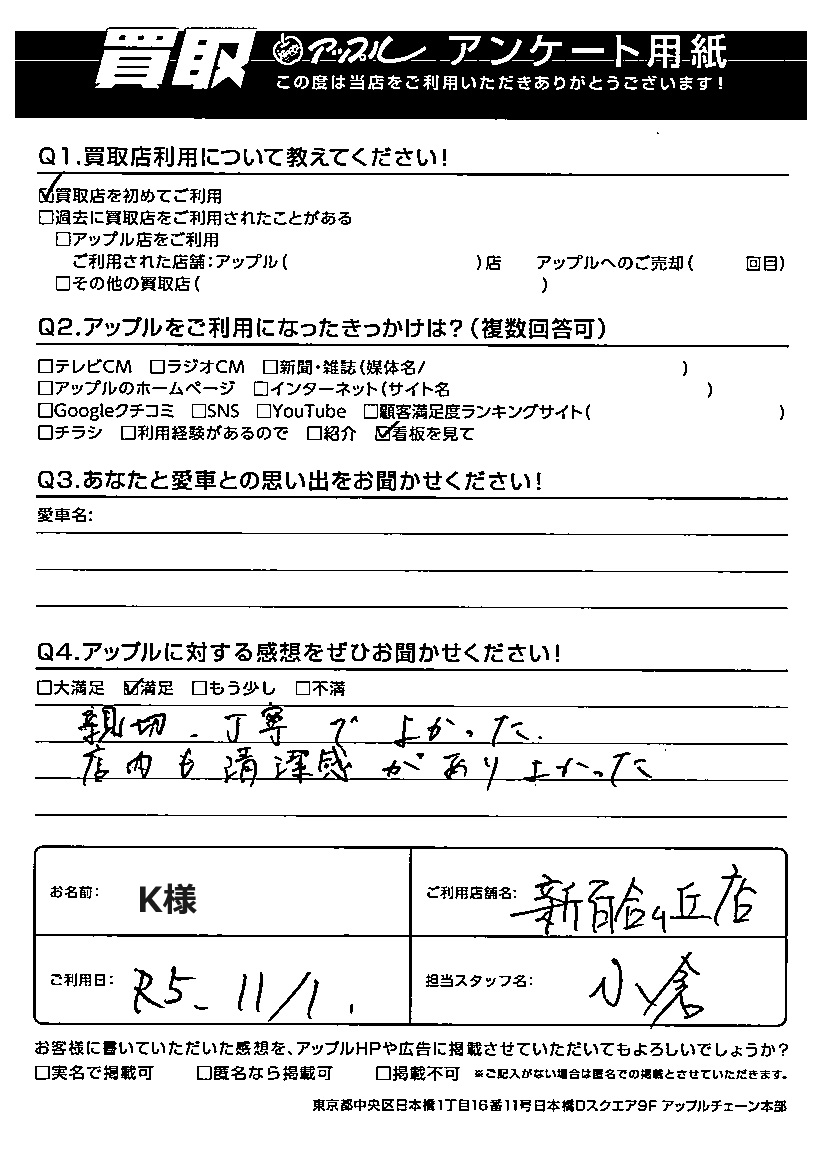 買取 アップル アンケート用紙
この度は当店をご利用いただきありがとうございます!
Q1.買取店利用について教えてください!
☑買取店を初めてご利用
□過去に買取店をご利用されたことがある
□アップル店をご利用
ご利用された店舗:アップル( )店 アップルへのご売却( 回目)
□その他の買取店( )
Q2.アップルをご利用になったきっかけは?(複数回答可)
□テレビCM □ラジオCM □新聞・雑誌(媒体名/ )
□アップルのホームページ □インターネット(サイト名 )
□Googleクチコミ □SNS □YouTube □顧客満足度ランキングサイト( )
□チラシ □利用経験があるので □紹介 ☑看板を見て
Q3.あなたと愛車との思い出をお聞かせください!
愛車名:
Q4.アップルに対する感想をぜひお聞かせください!
□大満足 ☑満足 □もう少し □不満
親切、丁寧でよかった.
店内も清潔感がありよかった
お名前: K様 ご利用店舗名: 新百合ヶ丘店
ご利用日: R5. 11/1. 担当スタッフ名: 小倉
お客様に書いていただいた感想を、アップルHPや広告に掲載させていただいてもよろしいでしょうか?
□実名で掲載可 □匿名なら掲載可 □掲載不可 ※ご記入がない場合は匿名での掲載とさせていただきます。
東京都中央区日本橋1丁目16番11号日本橋Dスクエア9F アップルチェーン本部